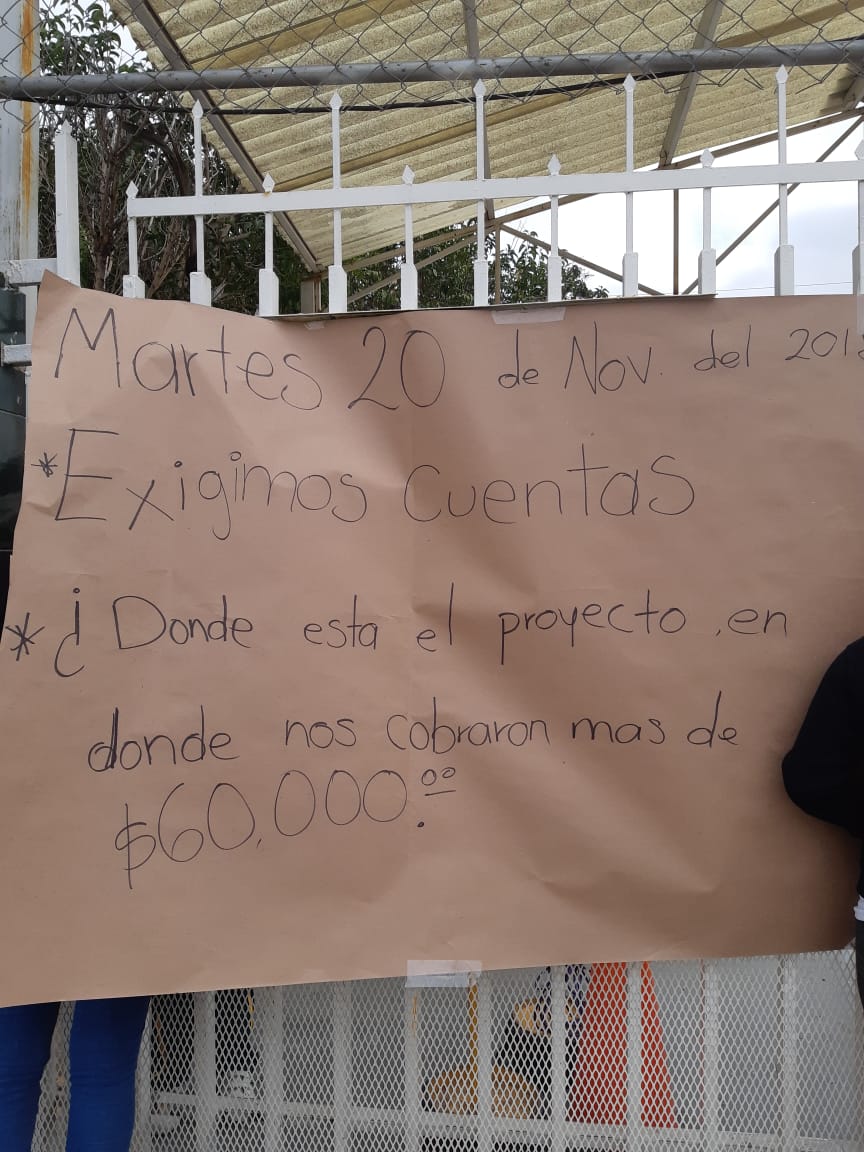 Martes 20 de Nov. del 2018
*Exigimos cuentas
*¿Donde esta el proyecto, en
donde nos cobraron mas de
$60,000.⁰⁰